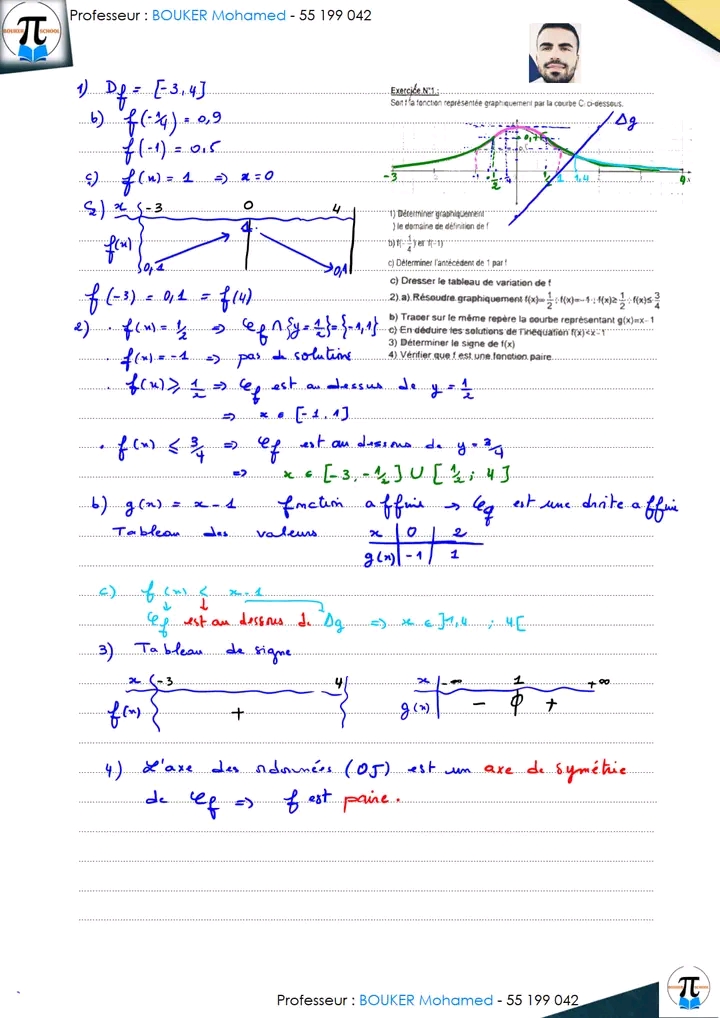 Professeur : BOUKER Mohamed - 55 199 042
BOUKER SCHOOL
π
1) Df = [-3, 4]
b) f(-1/4) = 0,9
f(-1) = 0,5
c) f(x) = 1 => x = 0
x -3 0 4
f(x) 0,1 1 0,1
f(-3) = 0,1 = f(4)
Exercice N°1 :
Soit f la fonction représentée graphiquement par la courbe C ci-dessous.
Δg
-3 1 1,4
1) Déterminer graphiquement
) le domaine de définition de f
b) f(-1/4) et f(-1)
c) Déterminer l'antécédent de 1 par f
c) Dresser le tableau de variation de f
2) a) Résoudre graphiquement f(x)=1/2 ; f(x)=-1 ; f(x)≥1/2 ; f(x)≤3/4
b) Tracer sur le même repère la courbe représentant g(x)=x-1
c) En déduire les solutions de l'inéquation f(x)<x-1
3) Déterminer le signe de f(x)
4) Vérifier que f est une fonction paire
2) . f(x) = 1/2 => Cf ∩ {y = 1/2} = {-1, 1}
. f(x) = -1 => pas de solutions
. f(x) ≥ 1/2 => Cf est au dessus de y = 1/2
=> x ∈ [-1, 1]
. f(x) ≤ 3/4 => Cf est au dessous de y = 3/4
=> x ∈ [-3, -1/2] ∪ [1/2 ; 4]
b) g(x) = x - 1 fonction affine → Cg est une droite affine
Tableau des valeurs
x 0 2
g(x) -1 1
c) f(x) < x - 1
Cf est au dessous de Δg => x ∈ ]1,4 ; 4[
3) Tableau de signe
x -3 4
f(x) +
x -∞ 1 +∞
g(x) - 0 +
4) L'axe des ordonnées (OJ) est un axe de symétrie
de Cf => f est paire.
Professeur : BOUKER Mohamed - 55 199 042
BOUKER SCHOOL
π